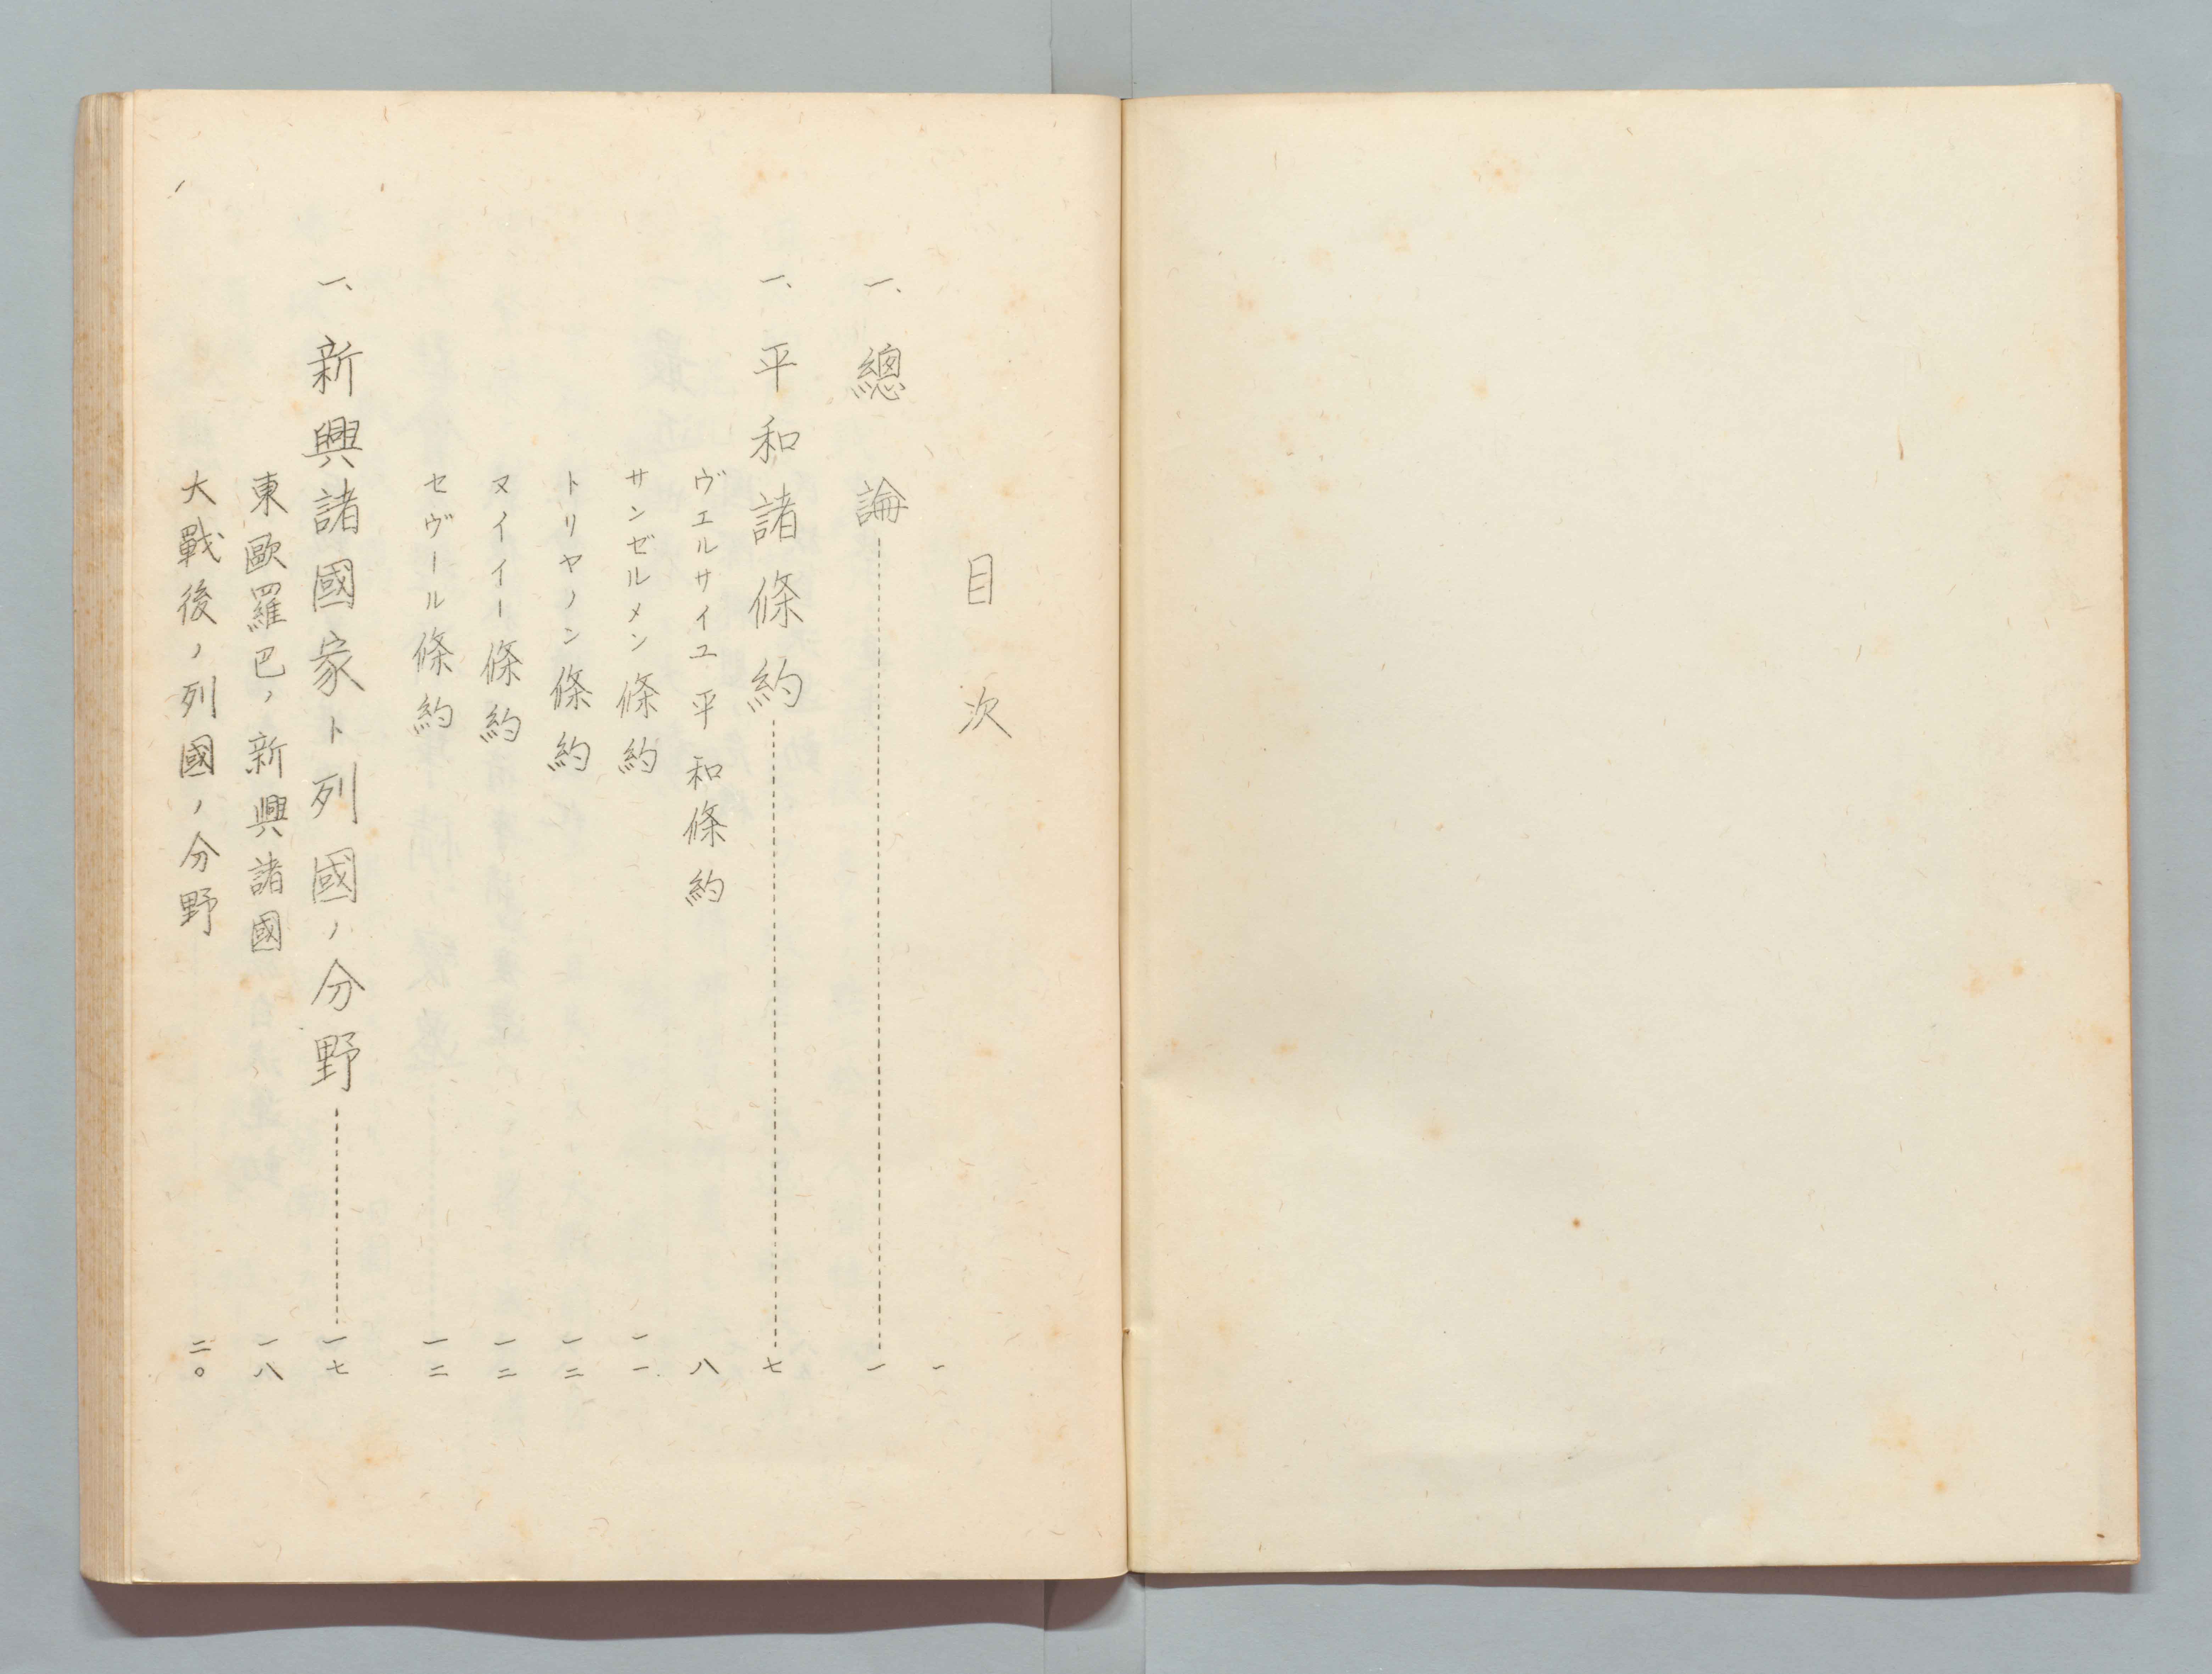 目次
一
一、總論 一
一、平和諸條約 七
ヴエルサイユ平和條約 八
サンゼルメン條約 一一
トリヤノン條約 一二
ヌイイー條約 一二
セヴール條約 一二
一、新興諸國家ト列國ノ分野 一七
東歐羅巴ノ新興諸國 一八
大戰後ノ列國ノ分野 二〇